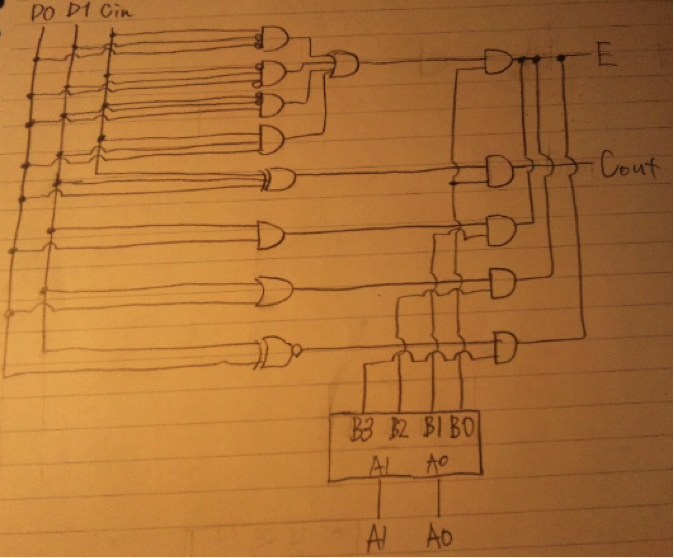 D0 D1 Cin
E
Cout
B3 B2 B1 B0
A1 A0
A1 A0